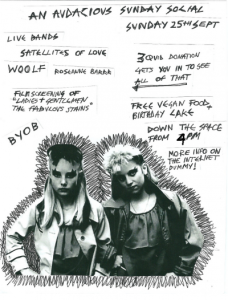 AN AUDACIOUS SUNDAY SOCIAL
SUNDAY 25TH SEPT
LIVE BANDS
SATELLITES OF LOVE
WOOLF ROSEANNE BARRR
FILM SCREENING OF
"LADIES & GENTLEMEN
THE FABULOUS STAINS"
BYOB
3 QUID DONATION
GETS YOU IN TO SEE
ALL OF THAT
FREE VEGAN FOOD,
BIRTHDAY CAKE
DOWN THE SPACE
FROM 4PM
MORE INFO ON
THE INTERNET
DUMMY!